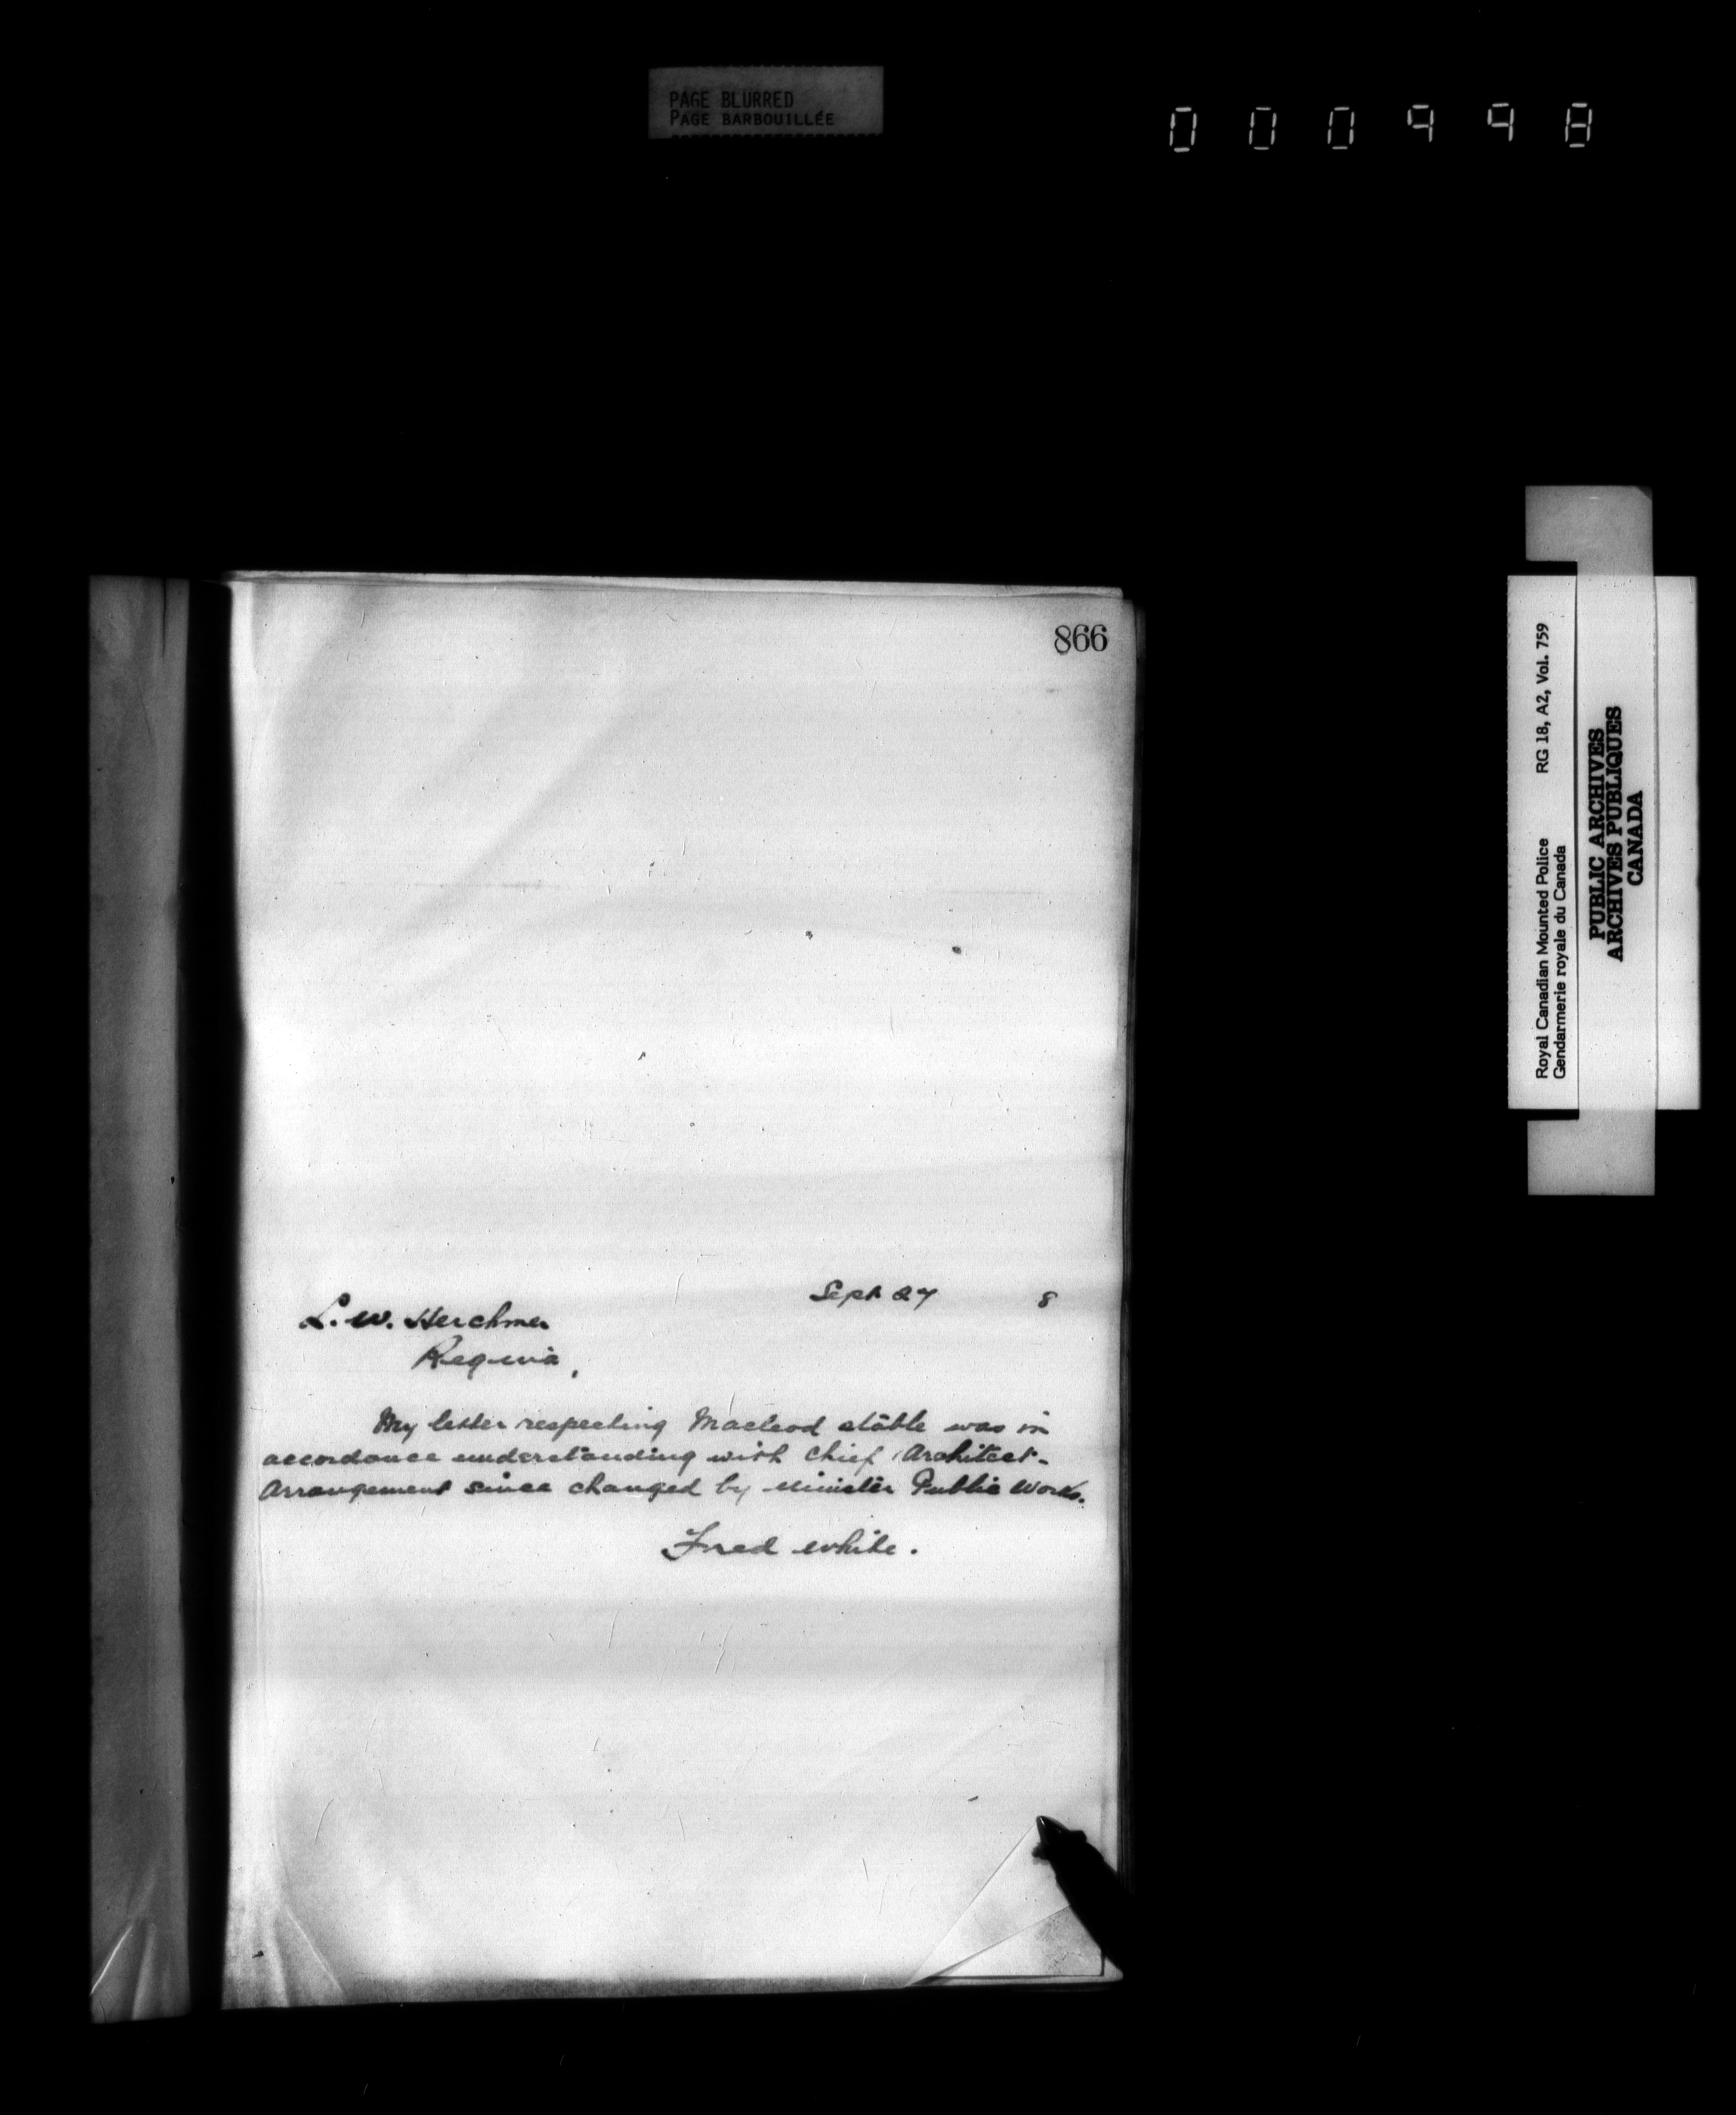 PAGE BLURRED
PAGE BARBOUILLÉE
000998
866
Sept 27 8
L. W. Herchmer
Regina,
My letter respecting Macleod stable was in
accordance understanding with Chief Architect-
Arrangement since changed by Minister Public Works.
Fred White.
Royal Canadian Mounted Police RG 18, A2, Vol. 759
Gendarmerie royale du Canada
PUBLIC ARCHIVES
ARCHIVES PUBLIQUES
CANADA